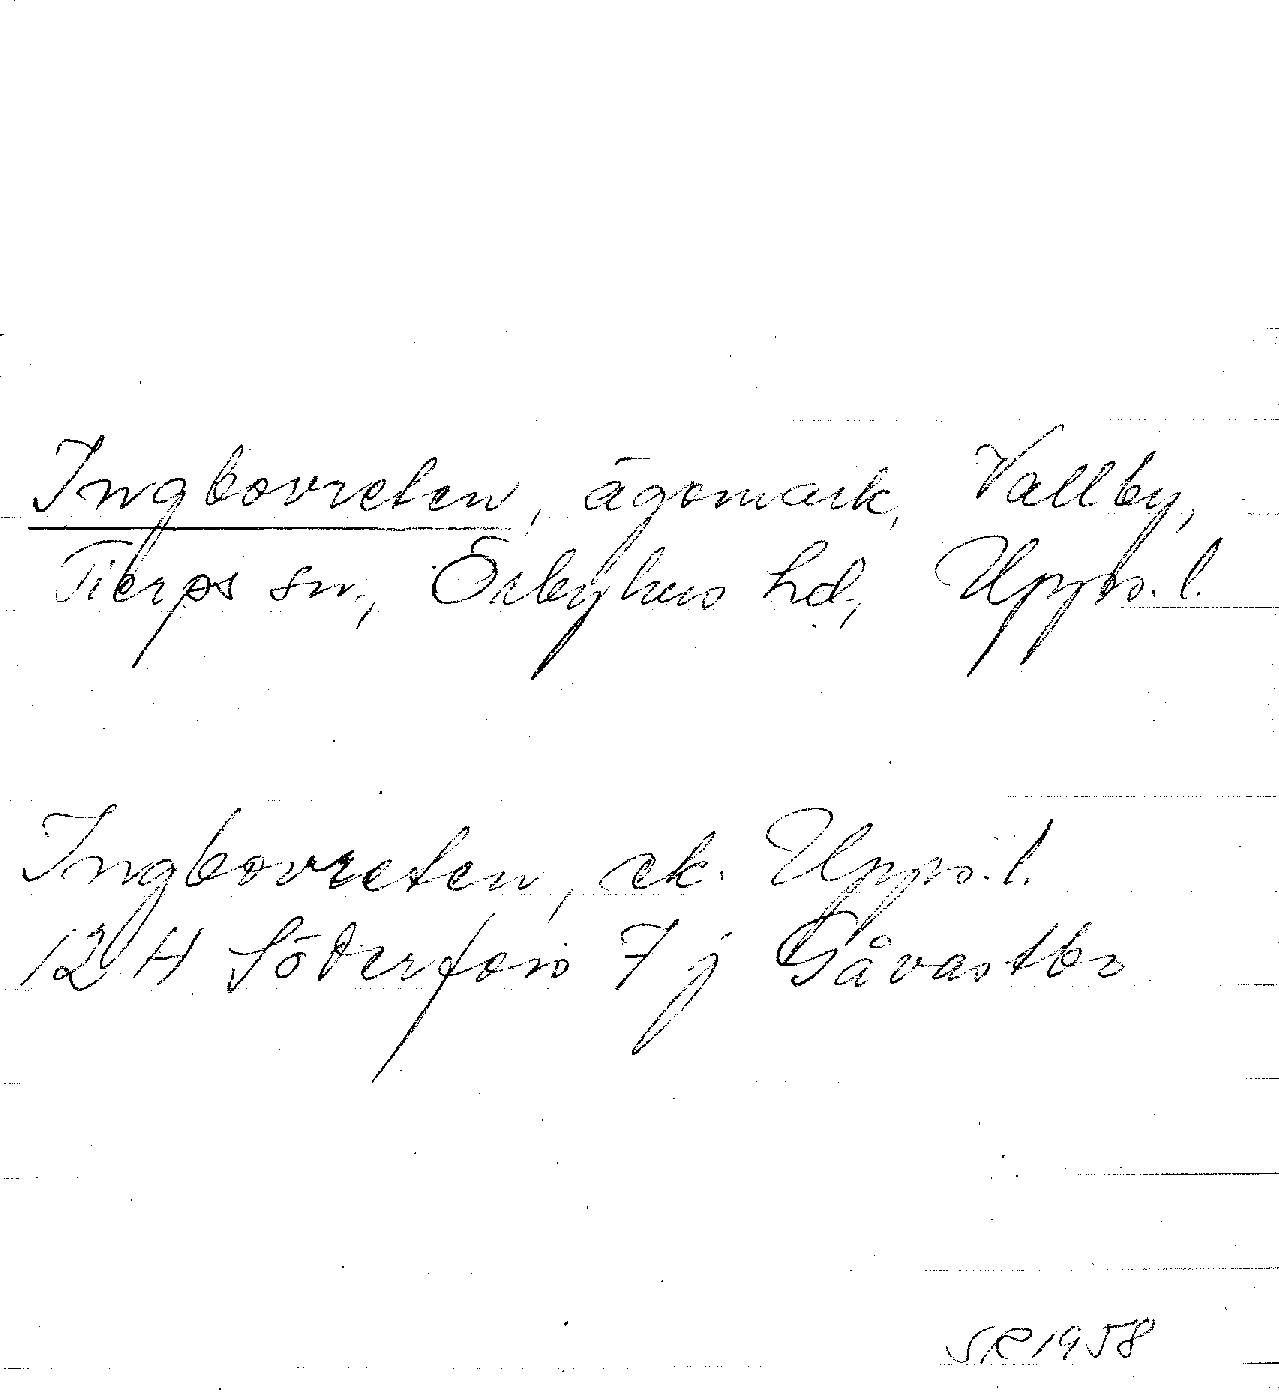 Ingbovreten, ägomark, Vallby,
Tierps sn, Örbyhus hd, Upps. l.
Ingbovreten, ek. Upps. l.
12 H Söderfors 7 j Gåvastbo
SR 1958